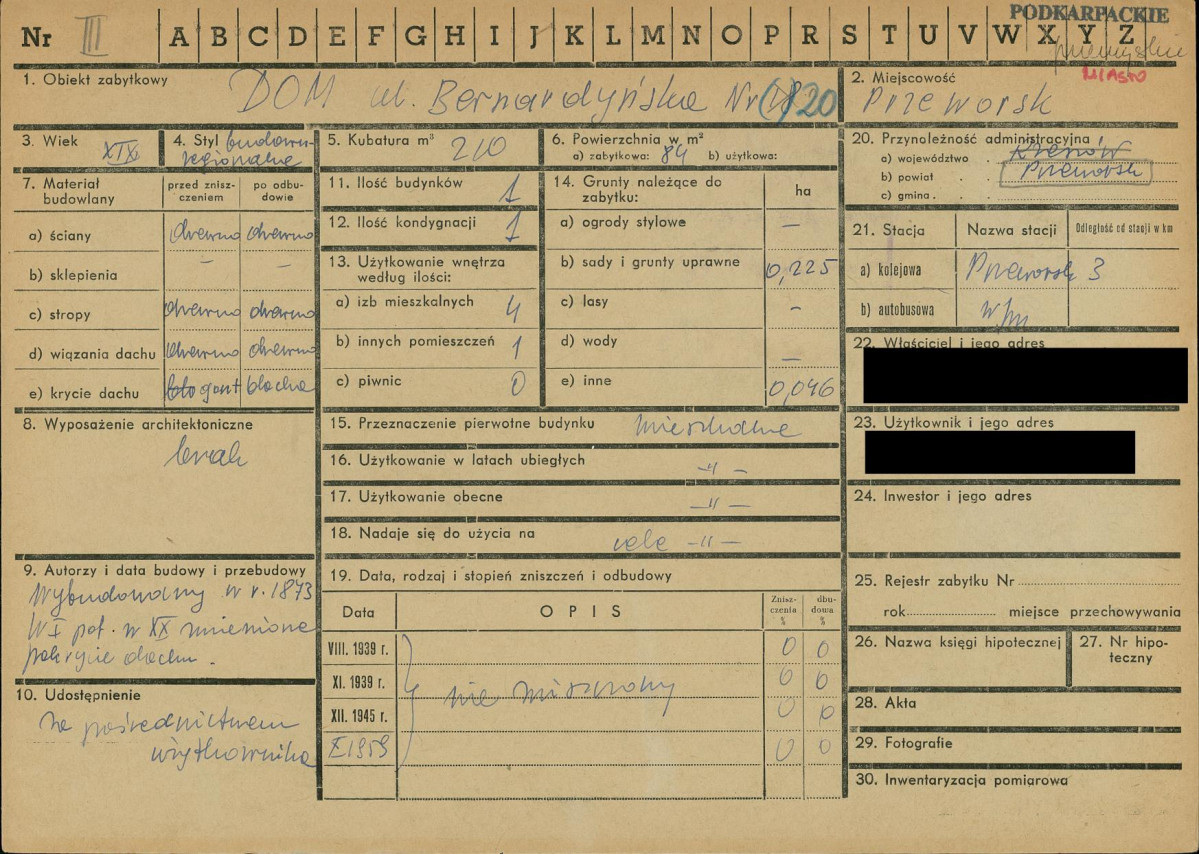 PODKARPACKIE
Nr III A B C D E F G H I J K L M N O P R S T U V W X Y Z
przemyskie
MIASTO
1. Obiekt zabytkowy DOM ul. Bernardyńska Nr 20
2. Miejscowość
Przeworsk
3. Wiek XIX
4. Styl budown. regionalne
5. Kubatura m³ 210
6. Powierzchnia w m²
a) zabytkowa: 84 b) użytkowa:
20. Przynależność administracyjna
a) województwo . Rzeszów
b) powiat . . Przeworsk
c) gmina . . .
7. Materiał budowlany
przed zniszczeniem
po odbudowie
a) ściany drewno drewno
b) sklepienia – –
c) stropy drewno drewno
d) wiązania dachu drewno drewno
e) krycie dachu gont blacha
11. Ilość budynków 1
12. Ilość kondygnacji 1
13. Użytkowanie wnętrza według ilości:
a) izb mieszkalnych 4
b) innych pomieszczeń 1
c) piwnic 0
14. Grunty należące do zabytku: ha
a) ogrody stylowe –
b) sady i grunty uprawne 0,225
c) lasy –
d) wody –
e) inne 0,046
21. Stacja Nazwa stacji Odległość od stacji w km
a) kolejowa Przeworsk 3
b) autobusowa
22. Właściciel i jego adres
23. Użytkownik i jego adres
24. Inwestor i jego adres
8. Wyposażenie architektoniczne
brak
15. Przeznaczenie pierwotne budynku mieszkalne
16. Użytkowanie w latach ubiegłych –"–
17. Użytkowanie obecne –"–
18. Nadaje się do użycia na cele –"–
9. Autorzy i data budowy i przebudowy
Wybudowany w r. 1873
W I poł. w XX zmienione
pokrycie dachu.
10. Udostępnienie
za pośrednictwem
użytkownika
19. Data, rodzaj i stopień zniszczeń i odbudowy
Data OPIS Zniszczenia % dbudowa %
VIII. 1939 r. 0 0
XI. 1939 r. nie niszczony 0 0
XII. 1945 r. 0 0
X 1959 0 0
25. Rejestr zabytku Nr
rok miejsce przechowywania
26. Nazwa księgi hipotecznej
27. Nr hipoteczny
28. Akta
29. Fotografie
30. Inwentaryzacja pomiarowa